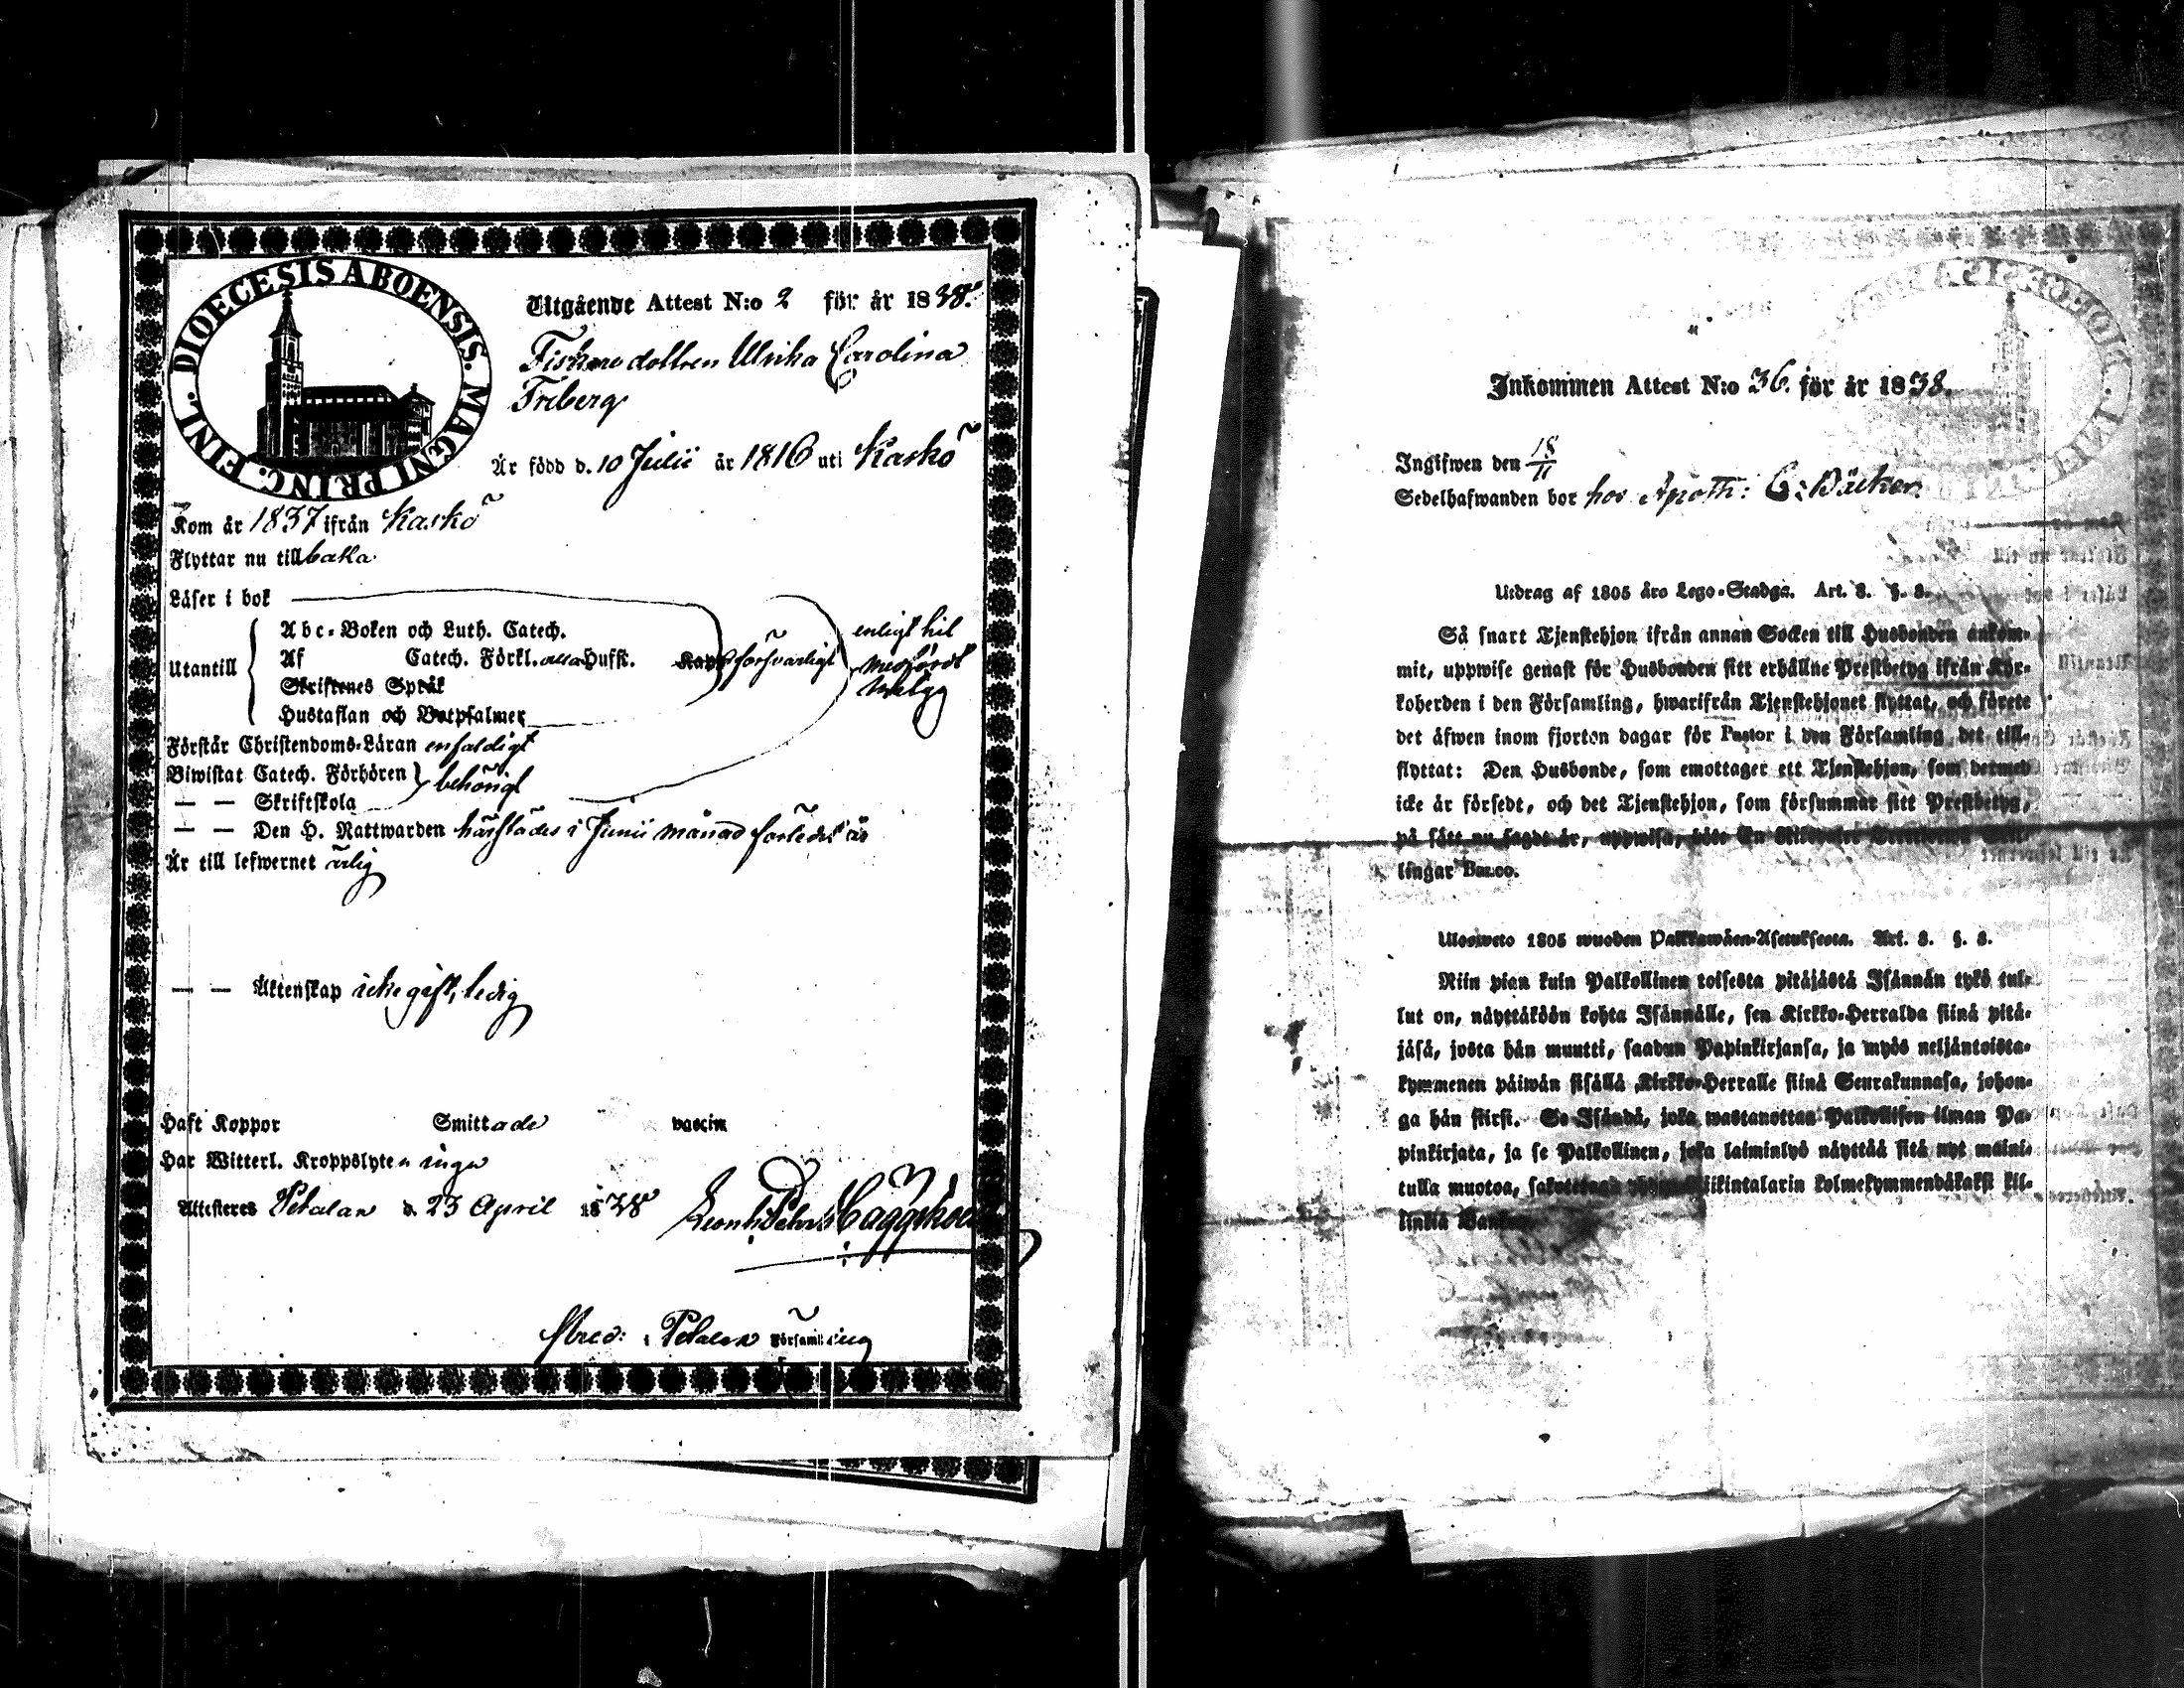 DIOECESIS ABOENSIS. MAGNI PRINC. FINL.
Utgående Attest N:o 2 för år 1838.
Fiskaredottren Ulrika Carolina
Friberg
Är född d. 10 Julii år 1816 uti Kaskö
Kom år 1837 ifrån Kaskö
Flyttar nu tillbaka
Läser i bok
Utantill
Abc-Boken och Luth. Catech.
Af Catech. Förkl. alla Hufst. försvarligt
Skriftenes Språk
Hustaflan och Botpsalmer
enligt hit
medfördt
betyg
Förstår Christendoms-Läran enfaldigt
Biwistat Catech. Förhören behörigt
— — Skriftskola
— — Den H. Nattwarden härstädes i Junii månad förledet år
Är till lefwernet ärlig
— — Äktenskap icke gift, ledig
Haft Koppor Smittade vaccin
Har Witterl. Kroppslyten inga
Attesteras Petalax d. 23 April 1838
i Petalax Församling
Inkommen Attest N:o 36. för år 1838.
Ingifwen den 18/11
Sedelhafwanden bor hos Apoth: C: Bäcker
Utdrag af 1805 års Lego-Stadga. Art. 3. §. 8.
Så snart Tjenstehjon ifrån annan Socken till Husbonden ankom-
mit, uppwise genast för Husbonden sitt erhållne Prestbetyg ifrån Kyr-
koherden i den Församling, hwarifrån Tjenstehjonet flyttat, och förete
det äfwen inom fjorton dagar för Pastor i den Församling det till-
flyttat: Den Husbonde, som emottager ett Tjenstehjon, som dermed
icke är försedt, och det Tjenstehjon, som försummar sitt Prestbetyg,
på sätt nu sagdt är, uppwisa, böte En Riksdaler
lingar Banco.
Ulosweto 1805 wuoden Palkkawäen-Asetuksesta. Art. 3. §. 8.
Niin pian kuin Palkollinen toisesta pitäjästä Isännän tykö tul-
lut on, näyttäköön kohta Isännälle, sen Kirkko-Herralda siinä pitä-
jäsä, josta hän muutti, saadun Papinkirjansa, ja myös neljäntoista-
kymmenen päiwän sisällä Kirkko-Herralle siinä Seurakunnasa, johon-
ga hän siirsi. Se Isändä, joka wastanottaa Palkollisen ilman Pa-
pinkirjata, ja se Palkollinen, joka laiminlyö näyttää sitä nyt maini-
tulla muotoa, sakotetaan yhden Riikintalarin kolmekymmendäkaksi kil-
linkiä Bankos